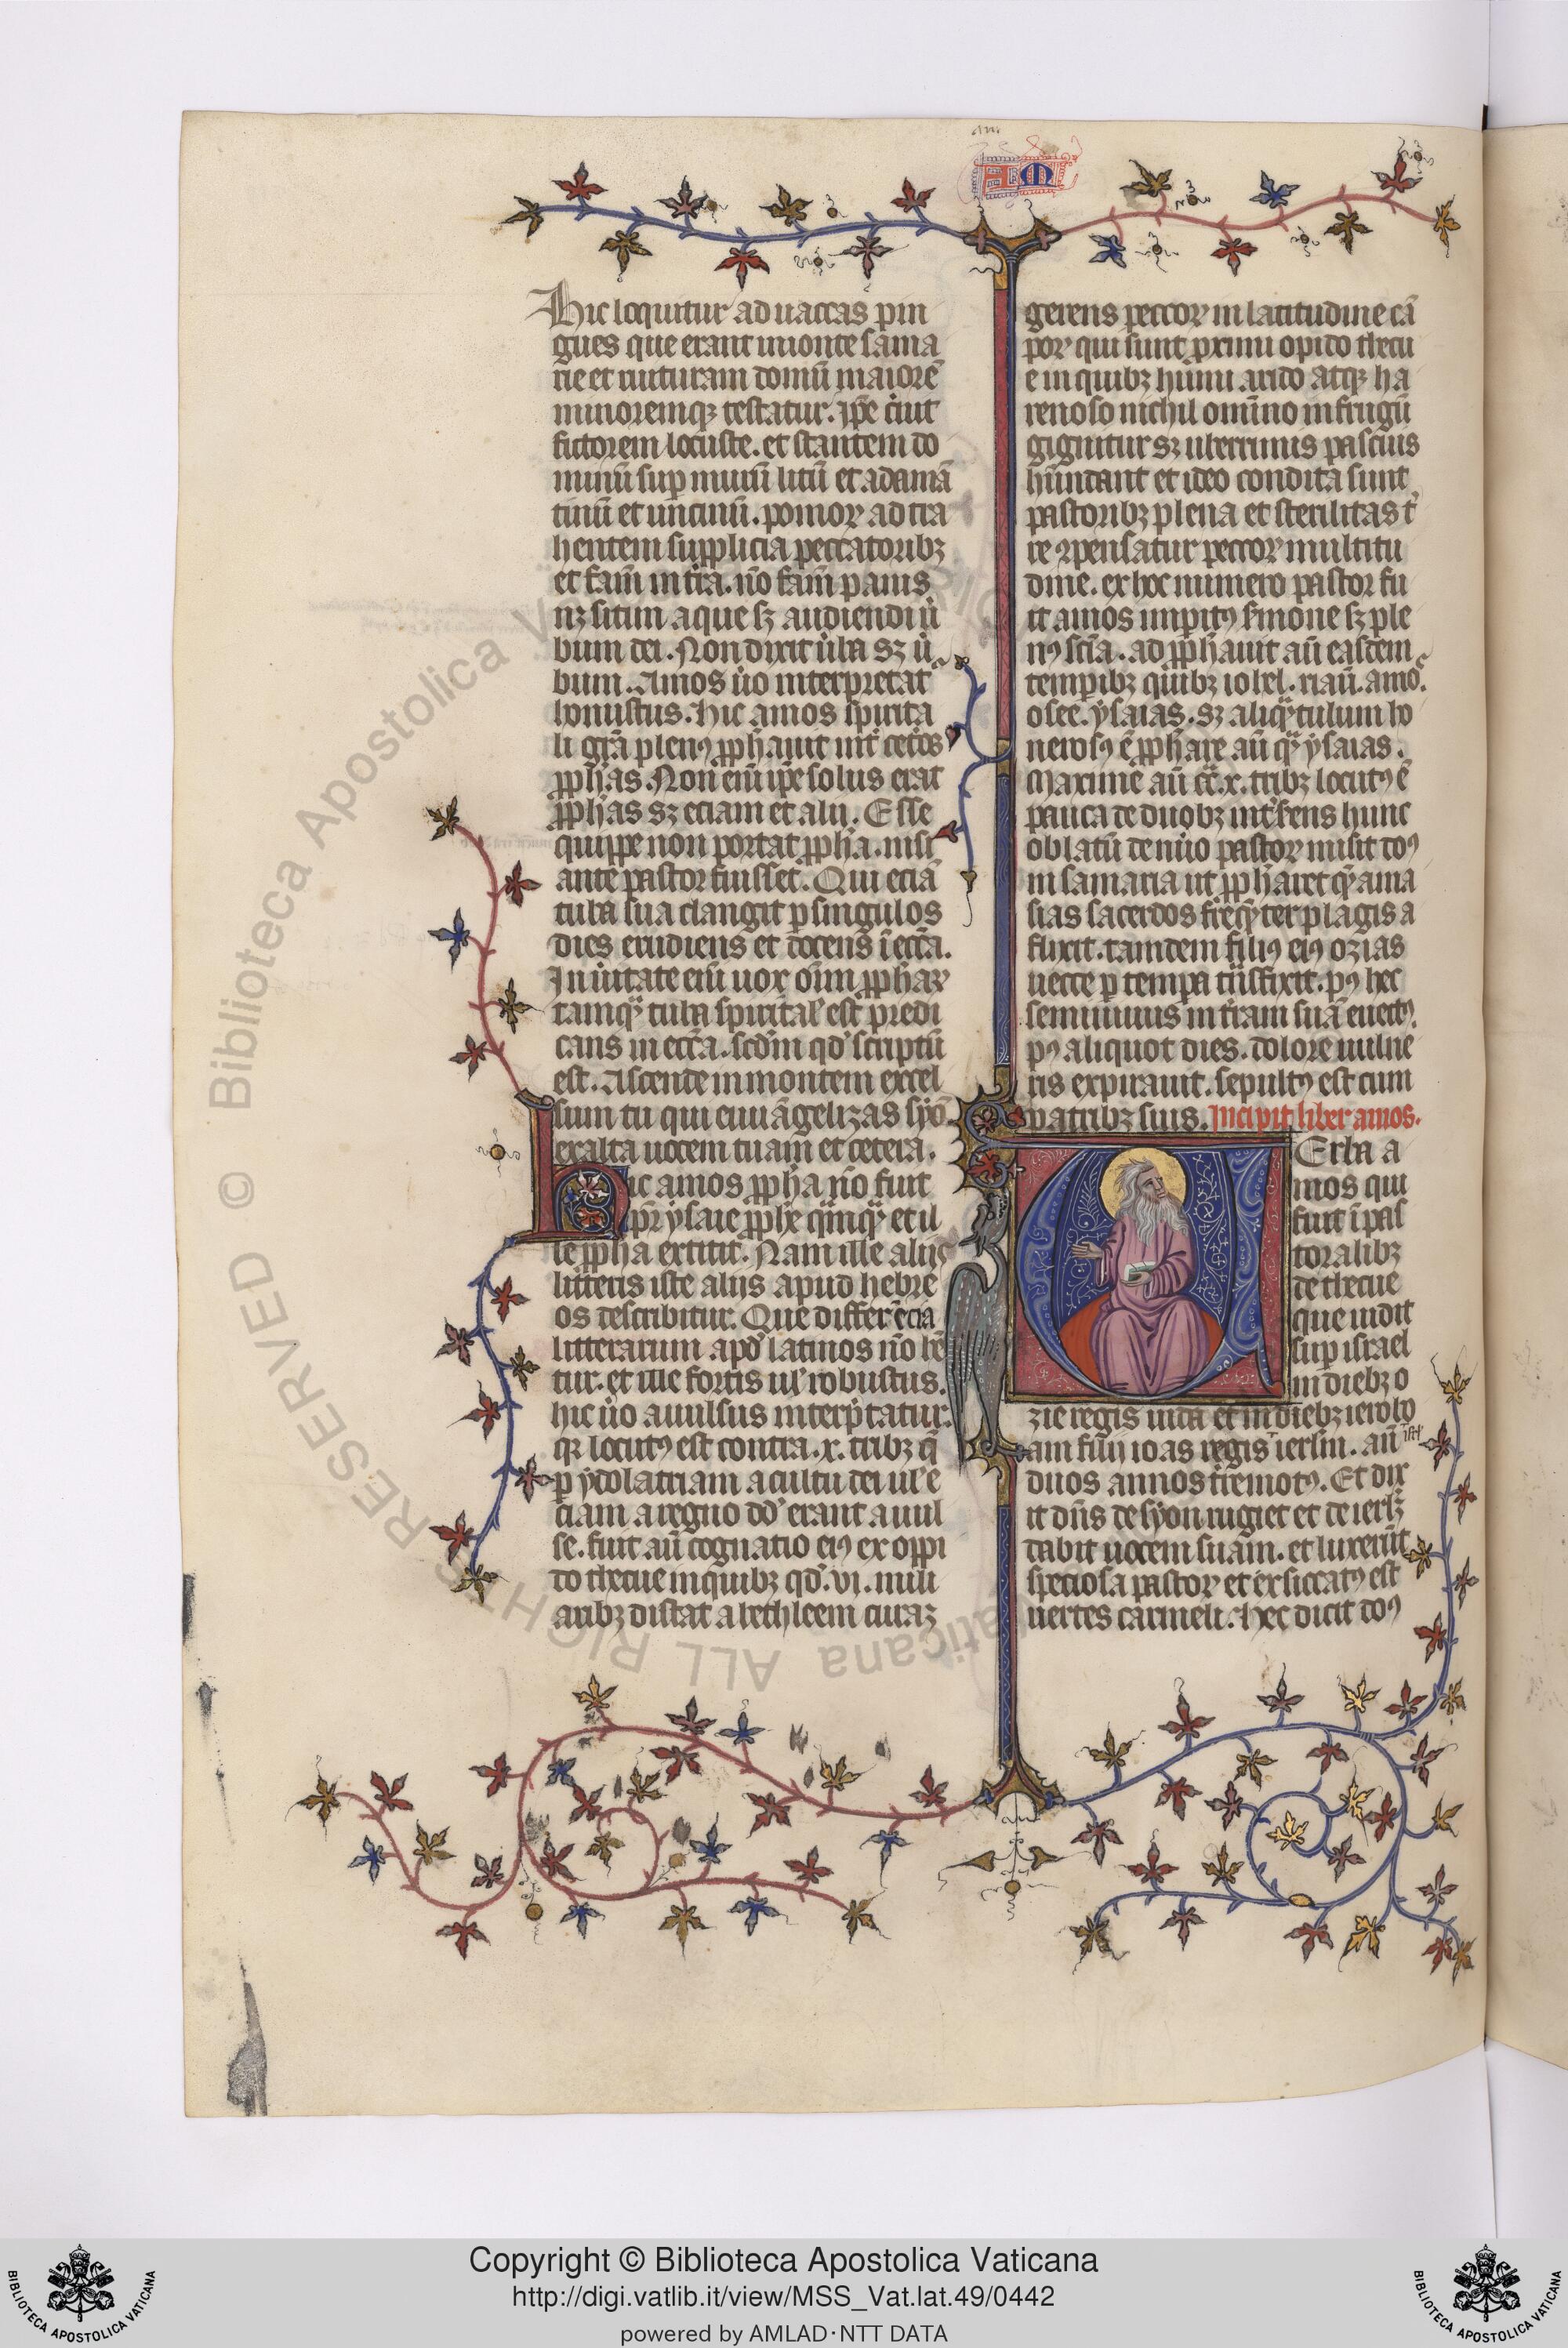 AMI
Hic loquitur ad uaccas pin
gues que erant in monte sama
rie et ruituram domū maiorē
minoremqꝫ testatur. Ip̄e ċnit
fictorem locuste. et stantem do
minū suꝑ murū litū et adamā
tinū et uncinū. pomoꝝ ad tra
hentem supplicia peccatoribꝫ
et famē in t̄ra. nō famē panis
nꝫ sitim aque sꝫ audiendi ů
bum dei. Non dixit ůba sꝫ ů
bum. Amos ůo interpretat̄
honustus. Hic amos spirita
li gr̄a plenꝰ ꝓph̄auit int̄ cet̄os
ꝓph̄as. Non eni᷒ ip̄e solus erat
ꝓph̄as sꝫ eciam et alii. Esse
quippe non portat ꝓph̄a. nisi
ante pastor fuisset. Qui eciā
tuba sua clangit ꝑ singulos
dies erudiens et docens ī ecc̄a.
In ůitate eni᷒ uox om̄i ꝓph̄aꝝ
tamqͣ tuba spirital̕ est predi
cans in ecc̄a. scd̄m qd̕ scriptū
est. Ascende in montem excel
sum tu qui euuāgelizas syō.
exalta uocem tuam et cetera.
Hic amos ꝓph̄a nō fuit
pr̄ ysaie ꝓph̄e qͥnqͣ et il
le ꝓph̄a extitit. Nam ille aliis
litteris iste aliis apud hebre
os describitur. Que differēcia
litterarum apd̕ latinos nō hē
tur. et ille fortis ul̕ robustus.
hic ůo auulsus interp̄tatur.
qꝛ locutꝰ est contra .x. tribꝫ q̄
ꝑ ydolatriam a cultu dei ul̕ e
ciam a regno dd̕ erant auul
se. fuit aū cognatio eiꝰ ex oppi
do thecue in quibꝫ qd̕ .vi. mili
aribꝫ distat a bethleem curaꝫ
gerens peccoꝝ in latitudine cā
poꝝ qui sunt ꝓximi opido thecu
e in quibꝫ humi arido atqꝫ ha
renoso nichil omīno in frugū
gignitur sꝫ uberrimis pascuis
hūndant et ideo condita sunt
pastoribꝫ plena et sterilitas t̕
re ꝯpensatur peccoꝝ multitu
dine. ex hoc numero pastor fu
it amos inꝑitꝰ s̄mone sꝫ ple
nꝰ sc̄ia. ad ꝓph̄auit aū easdem
temꝑibꝫ quibꝫ iohel. riaū. amō.
osee. ysaias. sꝫ aliqͣtulum ho
nerosꝰ ē ꝓph̄are aū qͣ ysaias.
Maxime aū cͣ .x. tribꝫ locutꝰ ē
pauca de duobꝫ int̕sens hunc
oblatū de nůo pastoꝝ misit doꝰ
in samaria ut ꝓph̄aret qͤ ama
sias sacerdos freqͤter plagis a
flixit. tamdem filiꝰ eiꝰ ozias
uecte ꝑ tempa tn̄sfixit. pꝰ hec
semiuiuus in t̄ram suā euectꝰ.
pꝰ aliquot dies. dolore uulne
ris expirauit. sepultꝰ est cum
patribꝫ suis. Incipit liber amos.
Uerba a
mos qui
fuit ī pas
toralibꝫ
de thecue
que uidit
suꝑ israel
in diebꝫ o
zie regis iuta et in diebꝫ ierobo
am filii ioas regis ierl̄m. aū isrl̕
duos annos t̄remotꝰ. Et dix
it dn̄s de syon rugiet et de ierl̄ꝫ
dabit uocem suam. et luxerūt
speciosa pastoꝝ et exsiccatꝰ est
uertes carmeli. Hec dicit doꝰ
RESERVED © Biblioteca Apostolica Vaticana ALL RIGHTS
Copyright © Biblioteca Apostolica Vaticana
http://digi.vatlib.it/view/MSS_Vat.lat.49/0442
powered by AMLAD·NTT DATA
BIBLIOTECA APOSTOLICA VATICANA
BIBLIOTECA APOSTOLICA VATICANA